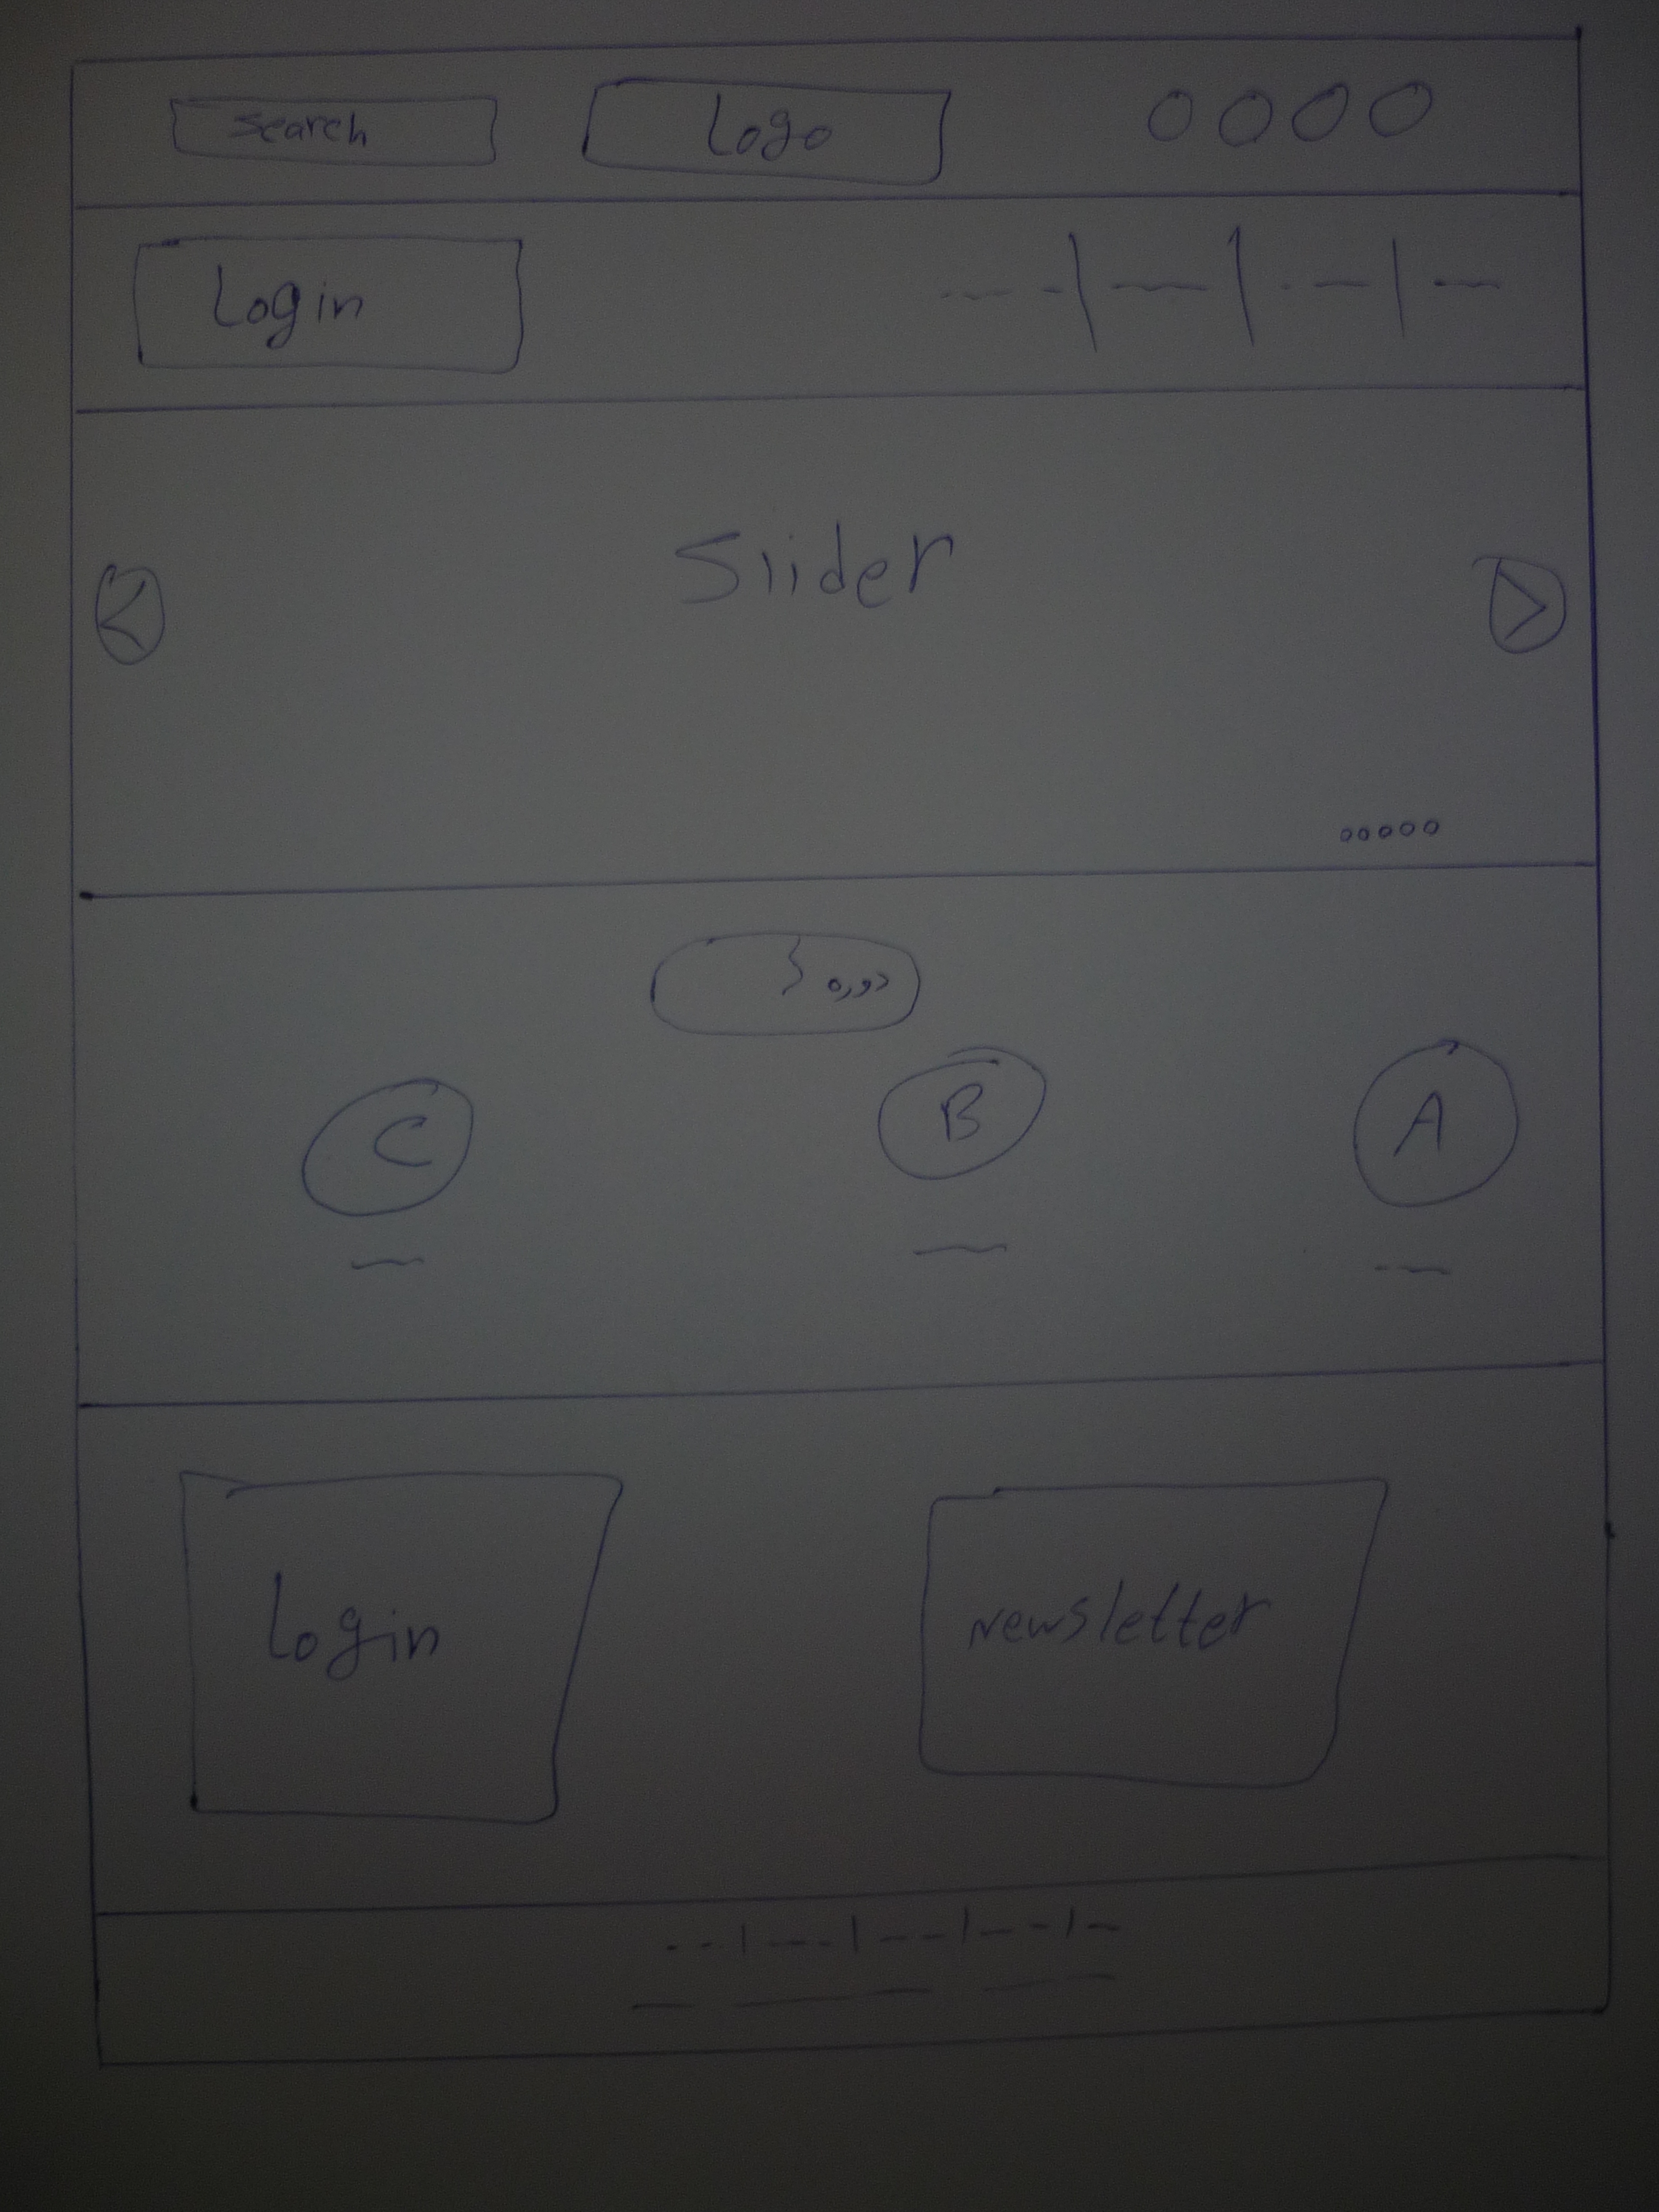 search Logo
Login
Slider
C B A
Login newsletter